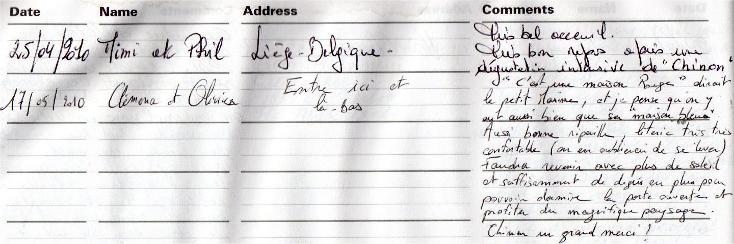 Date Name Address Comments
25/04/2010 Mimi et Phil Liège-Belgique- Très bel acceuil.
Très bon repas après une
dégustation intensive de "Chinon"
17/05/2010 Clémence et Olivier Entre ici et
là-bas
"C'est une maison Rouge" dirait
le petit Maxime, et je pense qu'on y
est aussi bien que sa maison bleue!
Aussi bonne ripaille, literie très très
confortable (on en oublierai de se lever)
Faudra revenir avec plus de soleil
et suffisemment de degrés en plus pour
pouvoir dormire la porte ouverte et
profiter du magnifique paysage.
un grand merci!